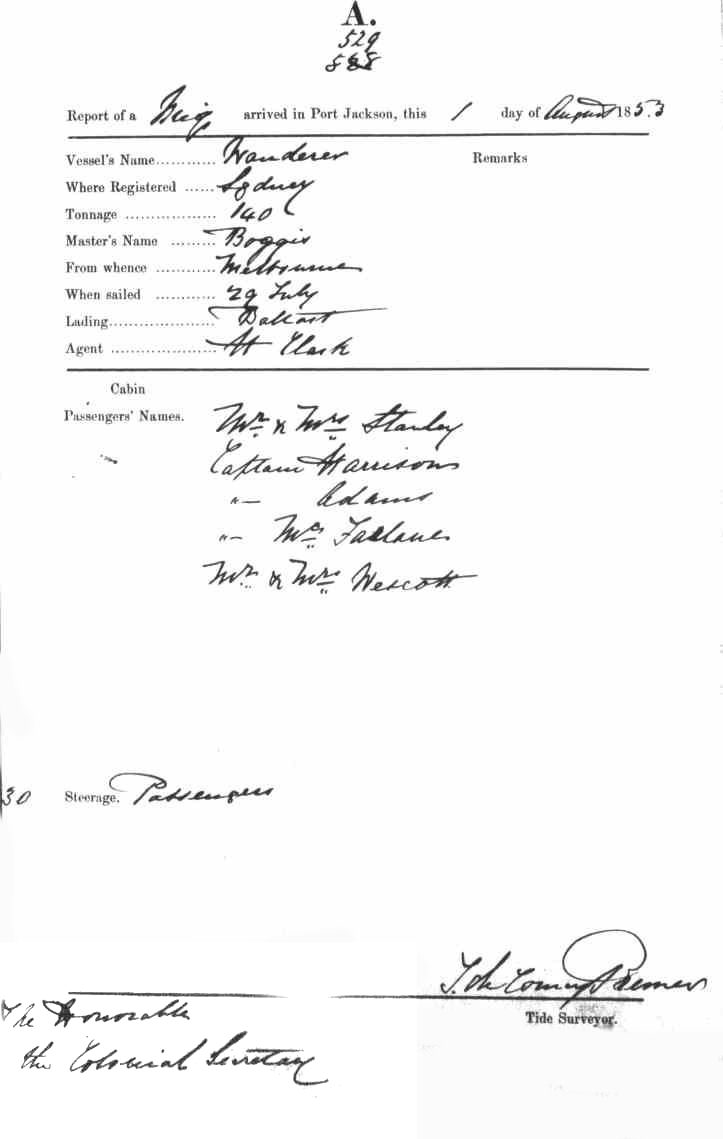 A.
529
Report of a Brig arrived in Port Jackson, this 1 day of August 1853
Vessel's Name............ Wanderer Remarks
Where Registered ...... Sydney
Tonnage .................. 140
Master's Name ......... Boggis
From whence ............ Melbourne
When sailed ............ 29 July
Lading..................... Ballast
Agent ..................... H Clark
Cabin
Passengers' Names. Mr. & Mrs Stanley
Captain Harrisons
"– Adams
"– Mc Farlane
Mr. & Mrs Wescott
30 Steerage. Passengers
Tide Surveyor.
The Honorable
the Colonial Secretary